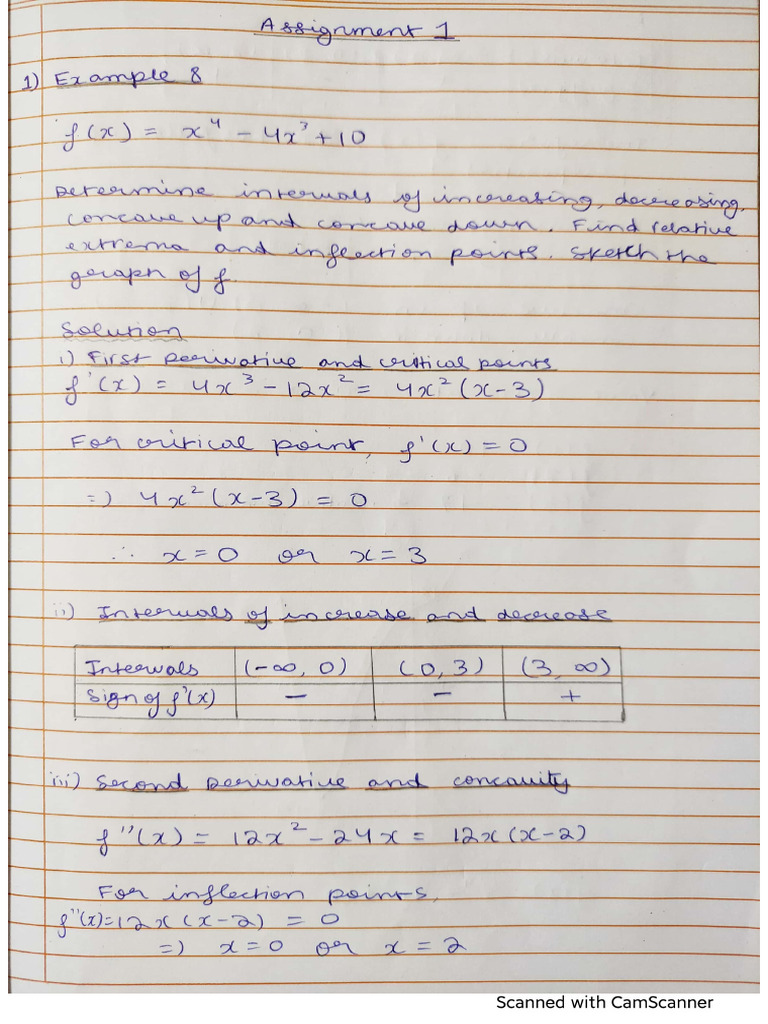 Assignment 1
1) Example 8
f(x) = x⁴ - 4x³ + 10
Determine intervals of increasing, decreasing,
concave up and concave down. Find relative
extrema and inflection points. Sketch the
graph of f.
Solution
i) First Derivative and critical points
f'(x) = 4x³ - 12x² = 4x² (x-3)
For critical point, f'(x) = 0
=) 4x² (x-3) = 0
∴ x = 0 or x = 3
ii) Intervals of increase and decrease
Intervals (-∞, 0) (0, 3) (3, ∞)
Sign of f'(x) - - +
iii) Second Derivative and concavity
f''(x) = 12x² - 24x = 12x (x-2)
For inflection points,
f''(x) = 12x (x-2) = 0
=) x = 0 or x = 2
Scanned with CamScanner